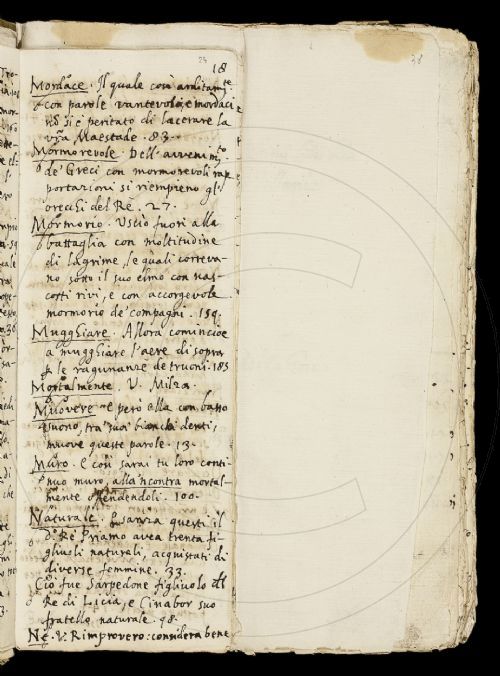 18
Mordace. Il quale così arditamte.
con parole vantevoli, e mordaci
si è peritato di lacerare la
vra Maestade. 83.
Mormorevole. Dell' avvenimto.
de' Greci con mormorevoli rap
portazioni si riempieno gl'
orecchi del Re. 27.
Mormorio. Uscio fuori alla
battaglia con moltitudine
di lagrime, le quali correva-
no sotto il suo elmo con nas-
costi rivi, e con accorgevole
mormorio de' compagni. 159.
Mugghiare. Allora cominciòe
a mugghiare l'aere di sopra
le ragunanze de truoni. 185
Mortalmente. V. Milza.
Muovere e però ella con basso
suono, tra suoi bianchi denti,
muove queste parole. 13.
Muro. E così sarai tu loro conti-
nuo muro, alla 'ncontra mortal-
mente offendendoli. 100.
Naturale. E sanza questi il
do. Re Priamo avea trenta fi-
gliuoli naturali, acquistati di
diverse femmine. 33.
Ciò fue Sarpedone figliuolo del
Re di Licia, e Cinabor suo
fratello naturale. 98.
Ne. V. Rimprovero: considera bene
38